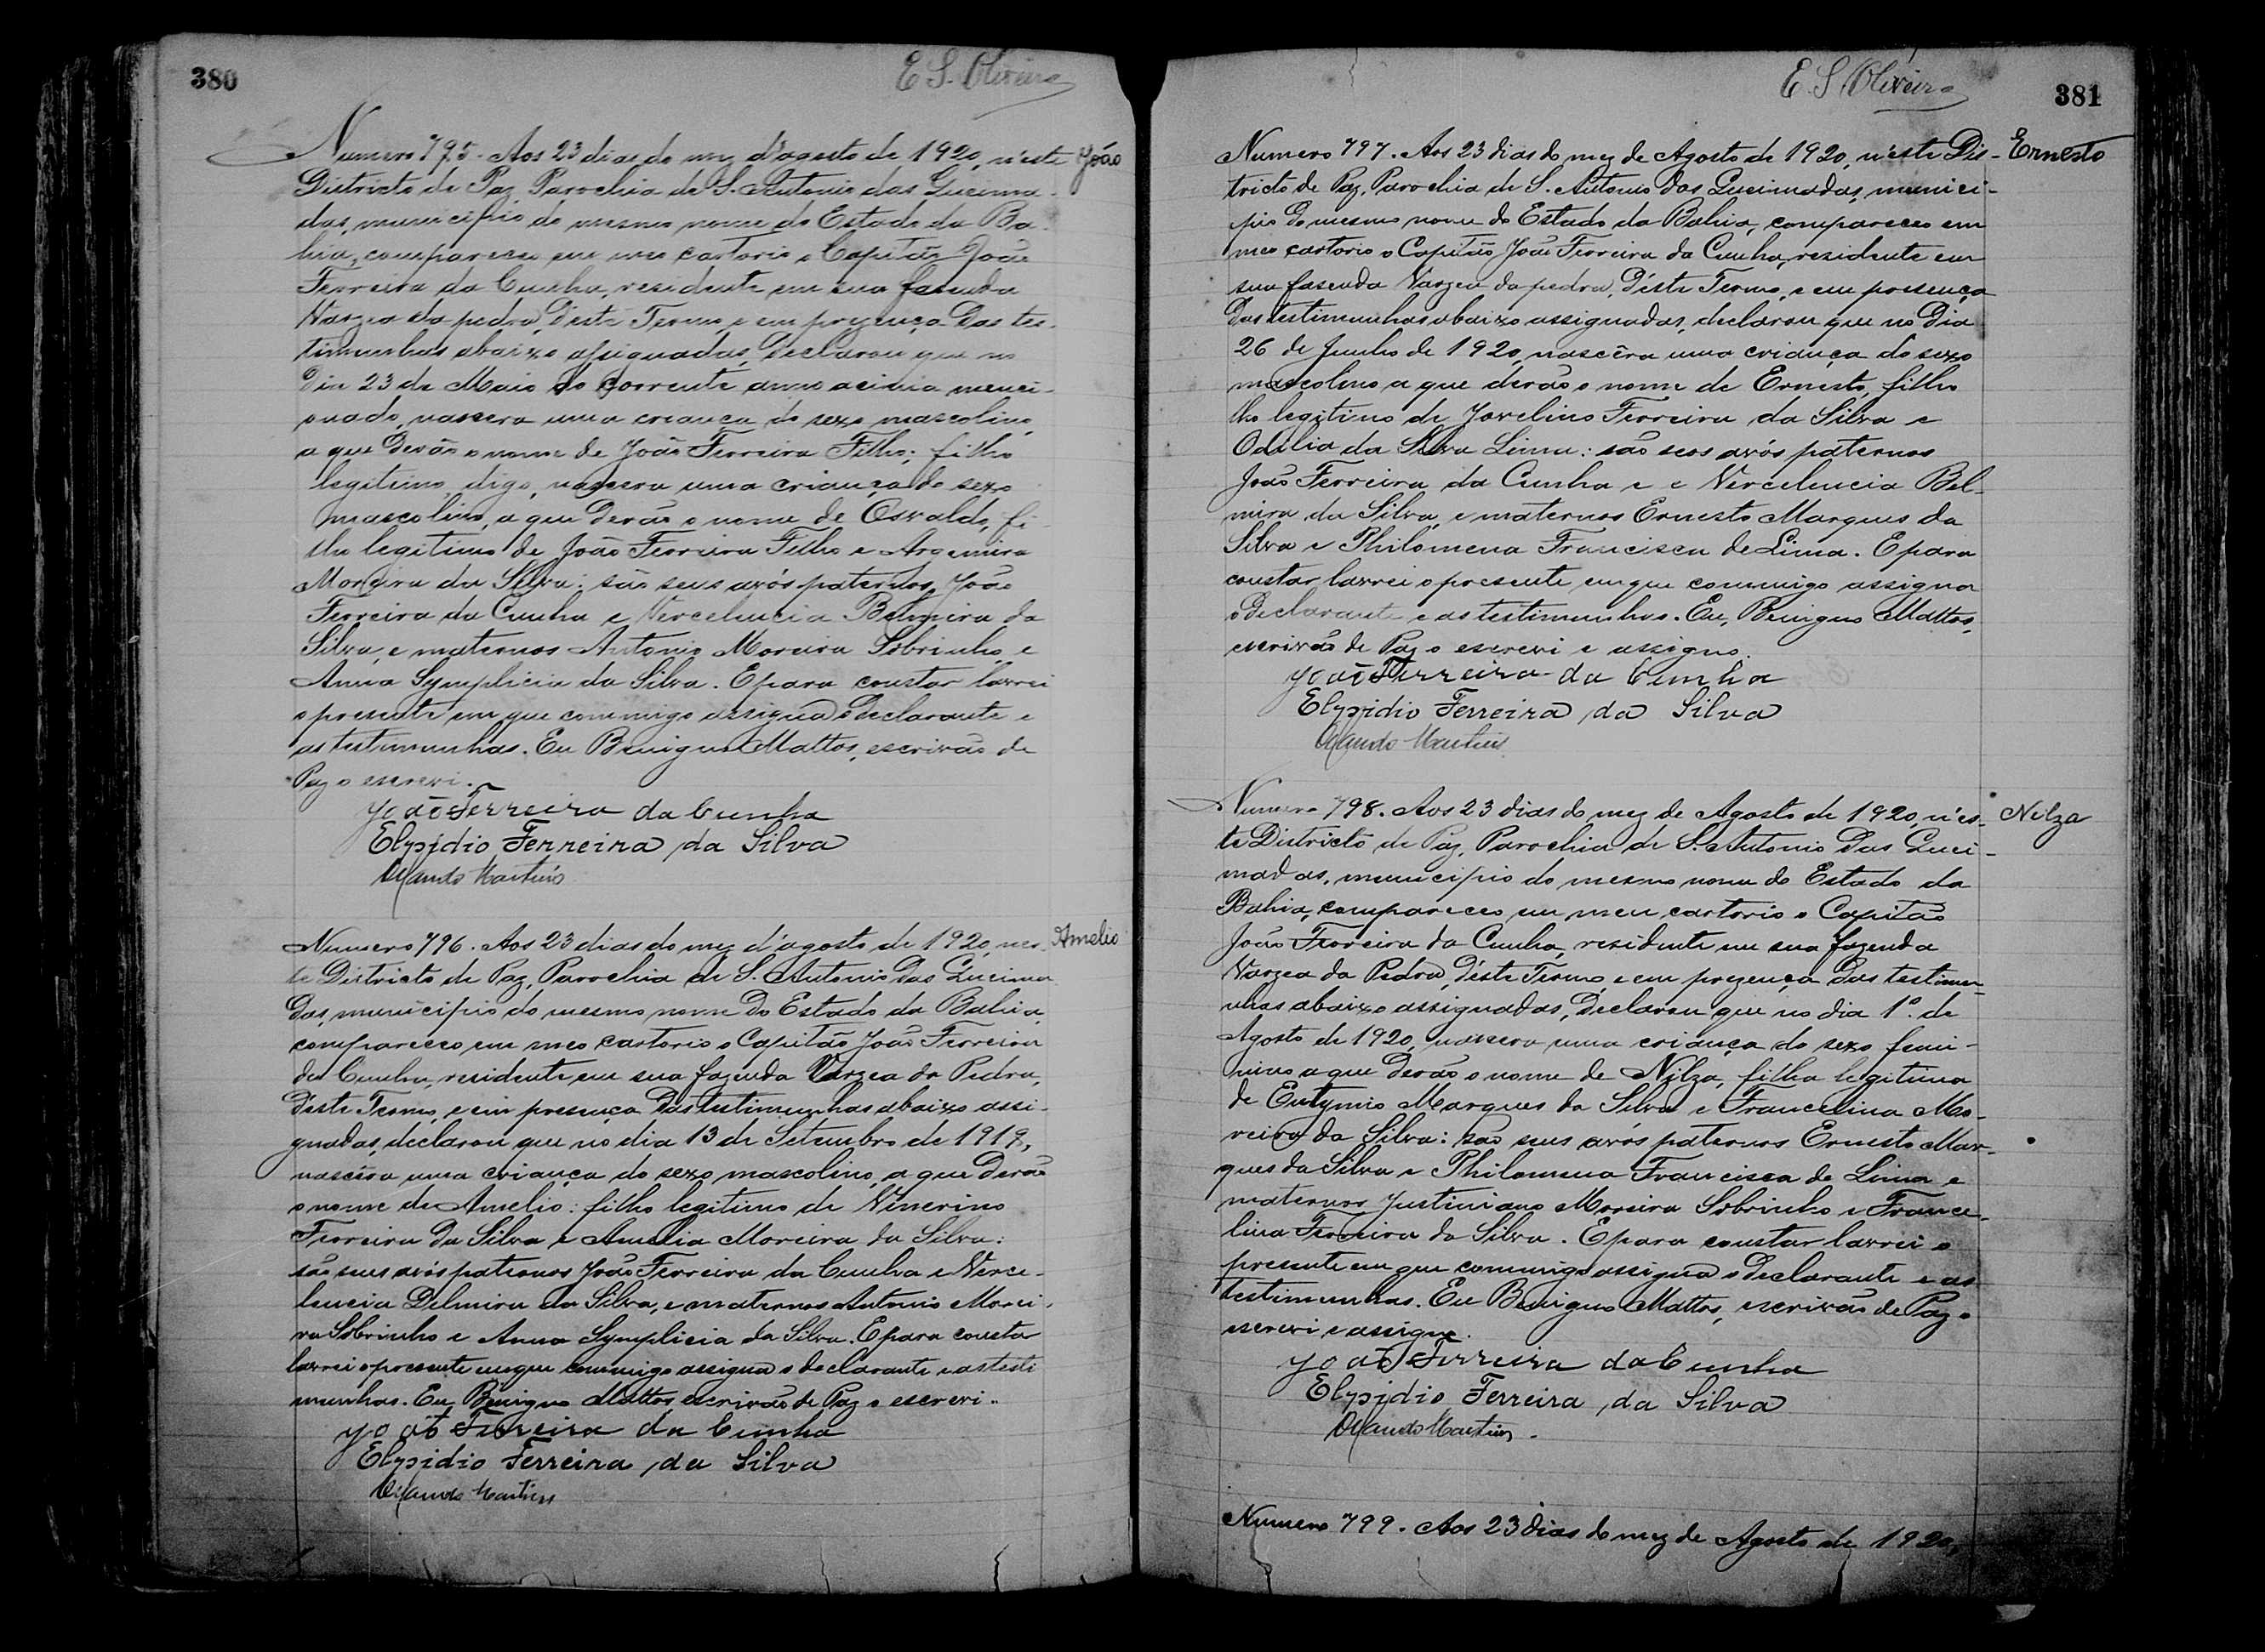 380
E S. Oliveira
Numero 795. Aos 23 dias do mez d'agosto de 1920, n'este
João
Districto de Paz, Parochia de S. Antonio das Queima-
das, municipio do mesmo nome do Estado da Ba-
hia, compareceo em meo cartorio o Capitão João
Ferreira da Cunha, residente em sua fasenda
Varzea da pedra, d'este Termo, e em prezença das tes-
timunhas abaixo assignadas, declarou que no
dia 23 de Maio do corrente anno acima menci-
onado, nascera uma criança do sexo mascolino,
a que derão o nome de João Ferreira Filho; filho
legitimo, digo, nascera uma criança do sexo
mascolino, a que derão o nome de Osvaldo, fi-
lho legitimo de João Ferreira Filho e Argemira
Moreira da Silva: são seus avós paternos, João
Ferreira da Cunha e Vercelencia Belmira da
Silva, e maternos Antonio Moreira Sobrinho e
Anna Symplicia da Silva. E para constar lavrei
o presente em que commigo assigna o declarante e
as testimunhas. Eu Benigno Mattos, escrivão de
Paz o escrevi.
João Ferreira da Cunha
Elypidio Ferreira da Silva
Martins
Numero 796. Aos 23 dias do mez d'agosto de 1920, nes-
Amelio
te Districto de Paz, Parochia de S. Antonio das Queima
das, municipio do mesmo nome do Estado da Bahia,
compareceo em meo cartorio o Capitão João Ferreira
da Cunha, residente em sua fazenda Varzea da Pedra,
d'este Termo, e em presença das testimunhas abaixo assi-
gnadas, declarou que no dia 13 de Setembro de 1919,
nascêra uma criança do sexo mascolino, a que derão
o nome de Amelio: filho legitimo de Venerino
Ferreira da Silva e Amelia Moreira da Silva:
são seus avós paternos João Ferreira da Cunha e Verce-
lencia Delmira da Silva, e maternos Antonio Morei-
ra Sobrinho e Anna Symplicia da Silva. E para constar
lavrei o presente em que commigo assigna o declarante e as testi
munhas. Eu Benigno Mattos escrivão de Paz o escrevi.
João Ferreira da Cunha
Elypidio Ferreira da Silva
Martins
381
E. S. Oliveira
Numero 797. Aos 23 dias do mez de Agosto de 1920, n'este Dis-
Ernesto
tricto de Paz, Parochia de S. Antonio das Queimadas, munici-
pio do mesmo nome do Estado da Bahia, compareceo em
meo cartorio o Capitão João Ferreira da Cunha, residente em
sua fasenda Varzea da pedra, d'este Termo, e em presença
das testimunhas abaixo assignadas, declarou que no dia
26 de Junho de 1920, nascêra uma criança do sexo
mascolino a que derão o nome de Ernesto, filho
lho legitimo de Jovelino Ferreira da Silva e
Odilia da Silva Lima: são seos avós paternos
João Ferreira da Cunha e e Vercelencia Bel-
mira da Silva, e maternos Ernesto Marques da
Silva e Philomena Francisca de Lima. E para
constar lavrei o presente em que commigo assigna
o declarante e as testimunhas. Eu, Benigno Mattos,
escrivão de Paz o escrevi e assigno.
João Ferreira da Cunha
Elypidio Ferreira da Silva
Martins
Numero 798. Aos 23 dias do mez de Agosto de 1920, n'es-
Nilza
te Districto de Paz, Parochia de S. Antonio das Quei-
madas, municipio do mesmo nome do Estado da
Bahia, compareceo em meu cartorio o Capitão
João Ferreira da Cunha, residente em sua fazenda
Varzea da Pedra, d'este Termo, e em prezença das testimu-
nhas abaixo assignadas, declarou que no dia 1º. de
Agosto de 1920, nascera uma criança do sexo femi-
nino a que derão o nome de Nilza, filha legitima
de Eutymio Marques da Silva e Francelina Mo-
reira da Silva: são seus avós paternos Ernesto Mar-
ques da Silva e Philomena Francisca de Lima e
maternos Justiniano Moreira Sobrinho e France-
lina Ferreira da Silva. E para constar lavrei o
presente em que commigo assigna o declarante e as
testimunhas. Eu Benigno Mattos, escrivão de Paz o
escrevi e assigno.
João Ferreira da Cunha
Elypidio Ferreira da Silva
Martins
Numero 799. Aos 23 dias do mez de Agosto de 1920,